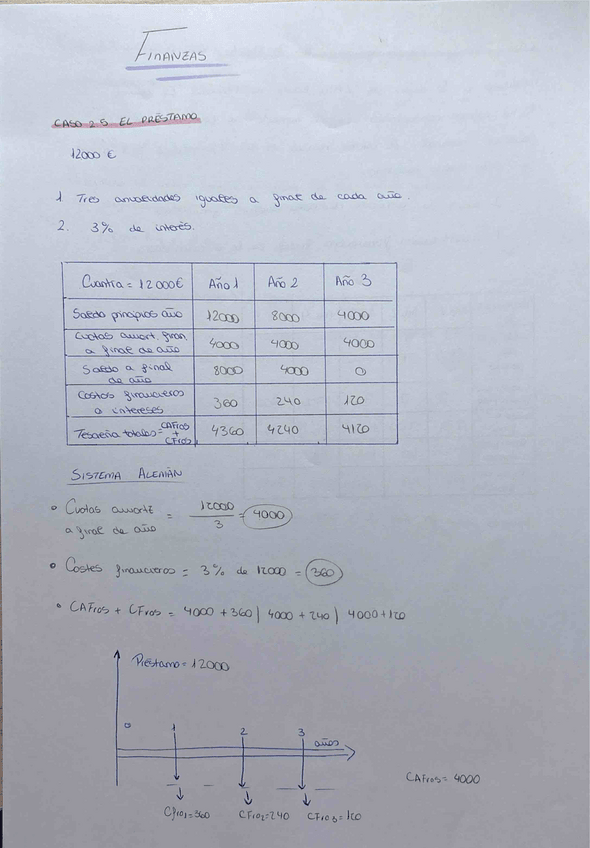 FINANZAS
CASO 2.5 EL PRÉSTAMO
12000 €
1. Tres anualidades iguales a final de cada año.
2. 3% de interés.
Cuantía = 12000€ Año 1 Año 2 Año 3
Saldo principios año 12000 8000 4000
Cuotas amort. finan. a final de año 4000 4000 4000
Saldo a final de año 8000 4000 0
Costos financieros o intereses 360 240 120
Tesorería totales = CAFros + CFros 4360 4240 4120
SISTEMA ALEMÁN
• Cuotas amort a final de año = 12000 / 3 = 4000
• Costes financieros = 3% de 12000 = 360
• CAFros + CFros = 4000 + 360 | 4000 + 240 | 4000 + 120
Préstamo = 12000
0 1 2 3 años
CAFros = 4000
CFro1 = 360 CFro2 = 240 CFro3 = 120